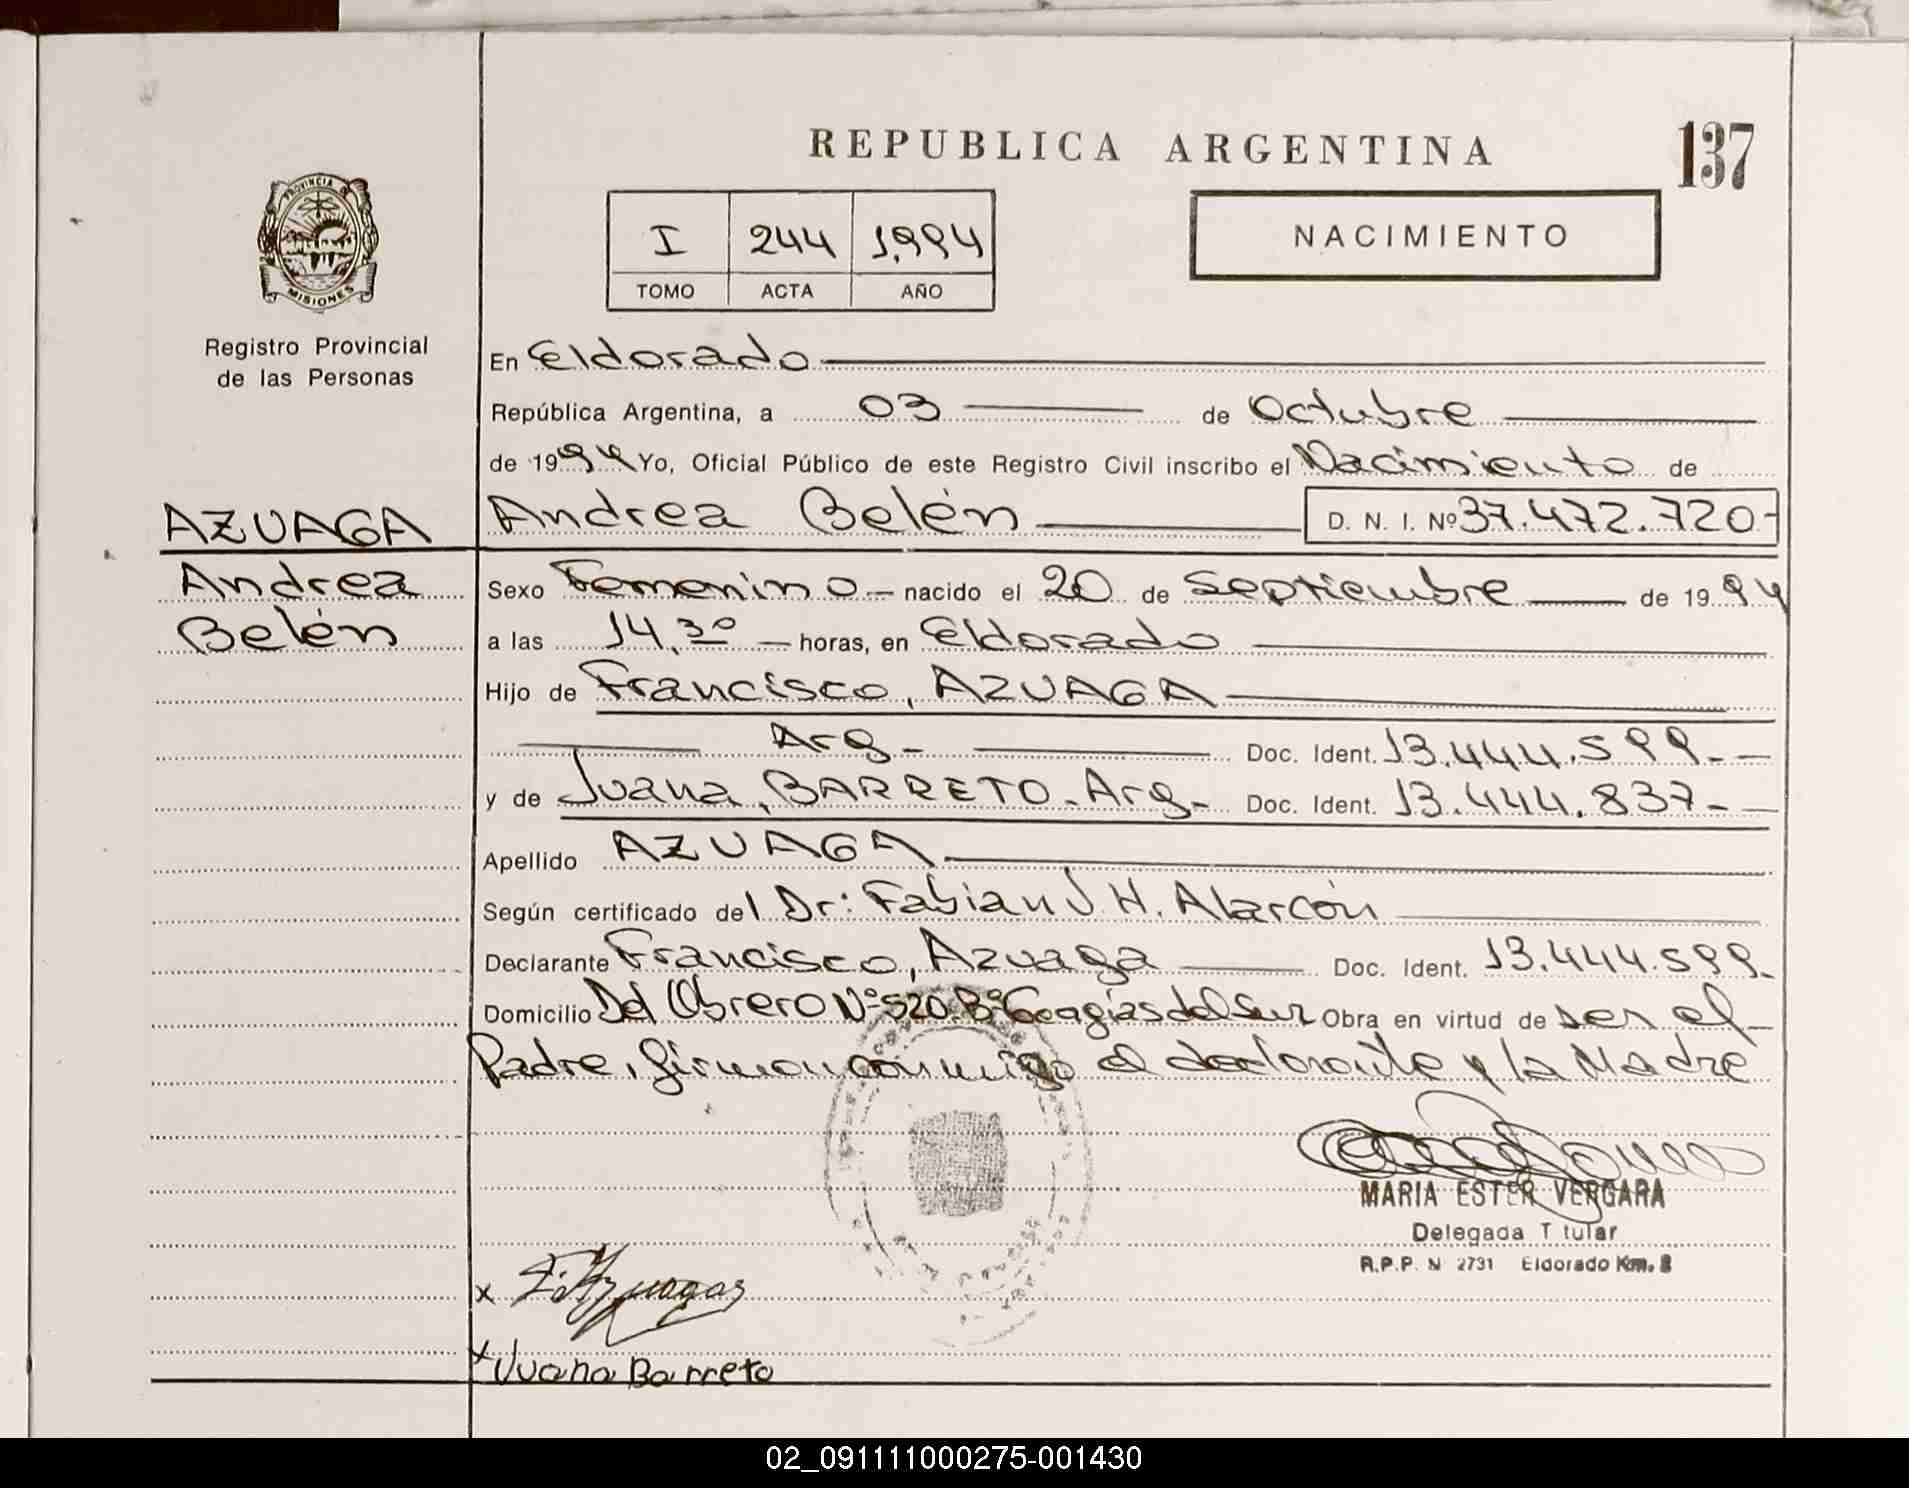 REPUBLICA ARGENTINA
137
PROVINCIA DE
MISIONES
Registro Provincial
de las Personas
I 244 1.994
TOMO ACTA AÑO
NACIMIENTO
En Eldorado
República Argentina, a 03 de Octubre
de 1994 Yo, Oficial Público de este Registro Civil inscribo el Nacimiento de
AZUAGA Andrea Belén D. N. I. Nº 37.472.720-
Andrea Sexo Femenino - nacido el 20 de Septiembre de 1994
Belén a las 14,30 - horas, en Eldorado
Hijo de Francisco, AZUAGA
Arg - Doc. Ident. 13.444.599.-
y de Juana, BARRETO - Arg - Doc. Ident. 13.444.837-
Apellido AZUAGA
Según certificado del Dr: Fabian J. H. Alarcón
Declarante Francisco, Azuaga Doc. Ident. 13.444.599-
Domicilio Del Obrero Nº 520. Bº del Sur Obra en virtud de ser el
Padre, firman conmigo el declarante y la Madre
MARIA ESTER VERGARA
Delegada T tular
R.P.P. N 2731 Eldorado Km. 8
x F. Azuaga
x Juana Barreto
02_091111000275-001430